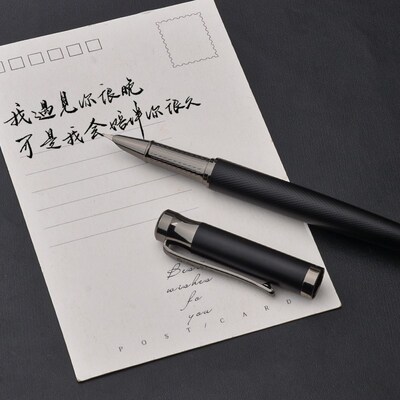 我遇見你很晚
可是我会陪伴你很久
Best
wishes
for
you
POST/CARD